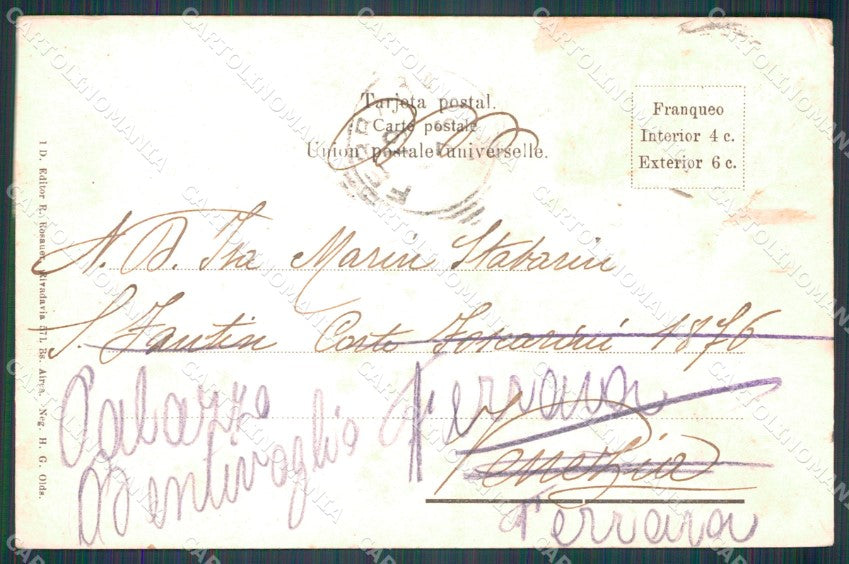 Tarjeta postal.
Carte postale
Union postale universelle.
Franqueo
Interior 4 c.
Exterior 6 c.
1 D. Editor R. Rosauer, Rivadavia 571, Bs. Aires. Neg. H. G. Olds.
N. D. Isa Marin Stabarin
S. Fantin Corte Foscarini 1876
Palazzo Ferrara
Bentivoglio Venezia
Ferrara
CARTOLINOMANIA